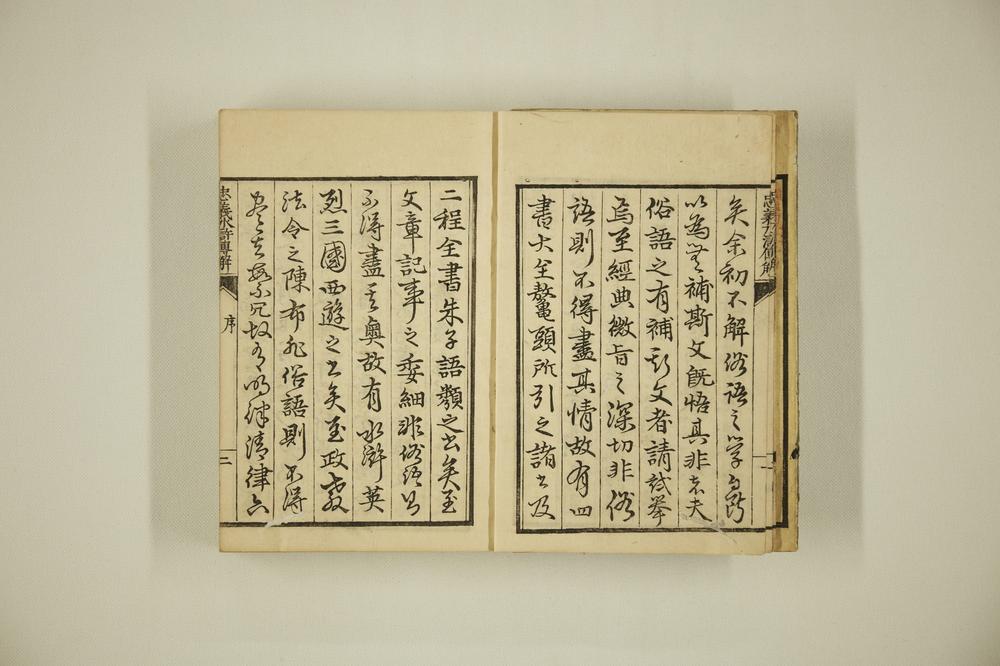 忠義水滸傳解
矣余初不解俗語之學
以為無補斯文既悟其非夫
俗語之有補斯文者請試举
焉至經典微旨之深切非俗
語則不得盡其情故有四
書大全鼇頭所引之諸书及
二程全書朱子語類之书矣至
文章記事之委細非俗語則
不得盡其奥故有水滸英
烈三國西遊之书矣至政教
法令之陳布非俗語則不得
律清律六
忠義水滸傳解
序
二